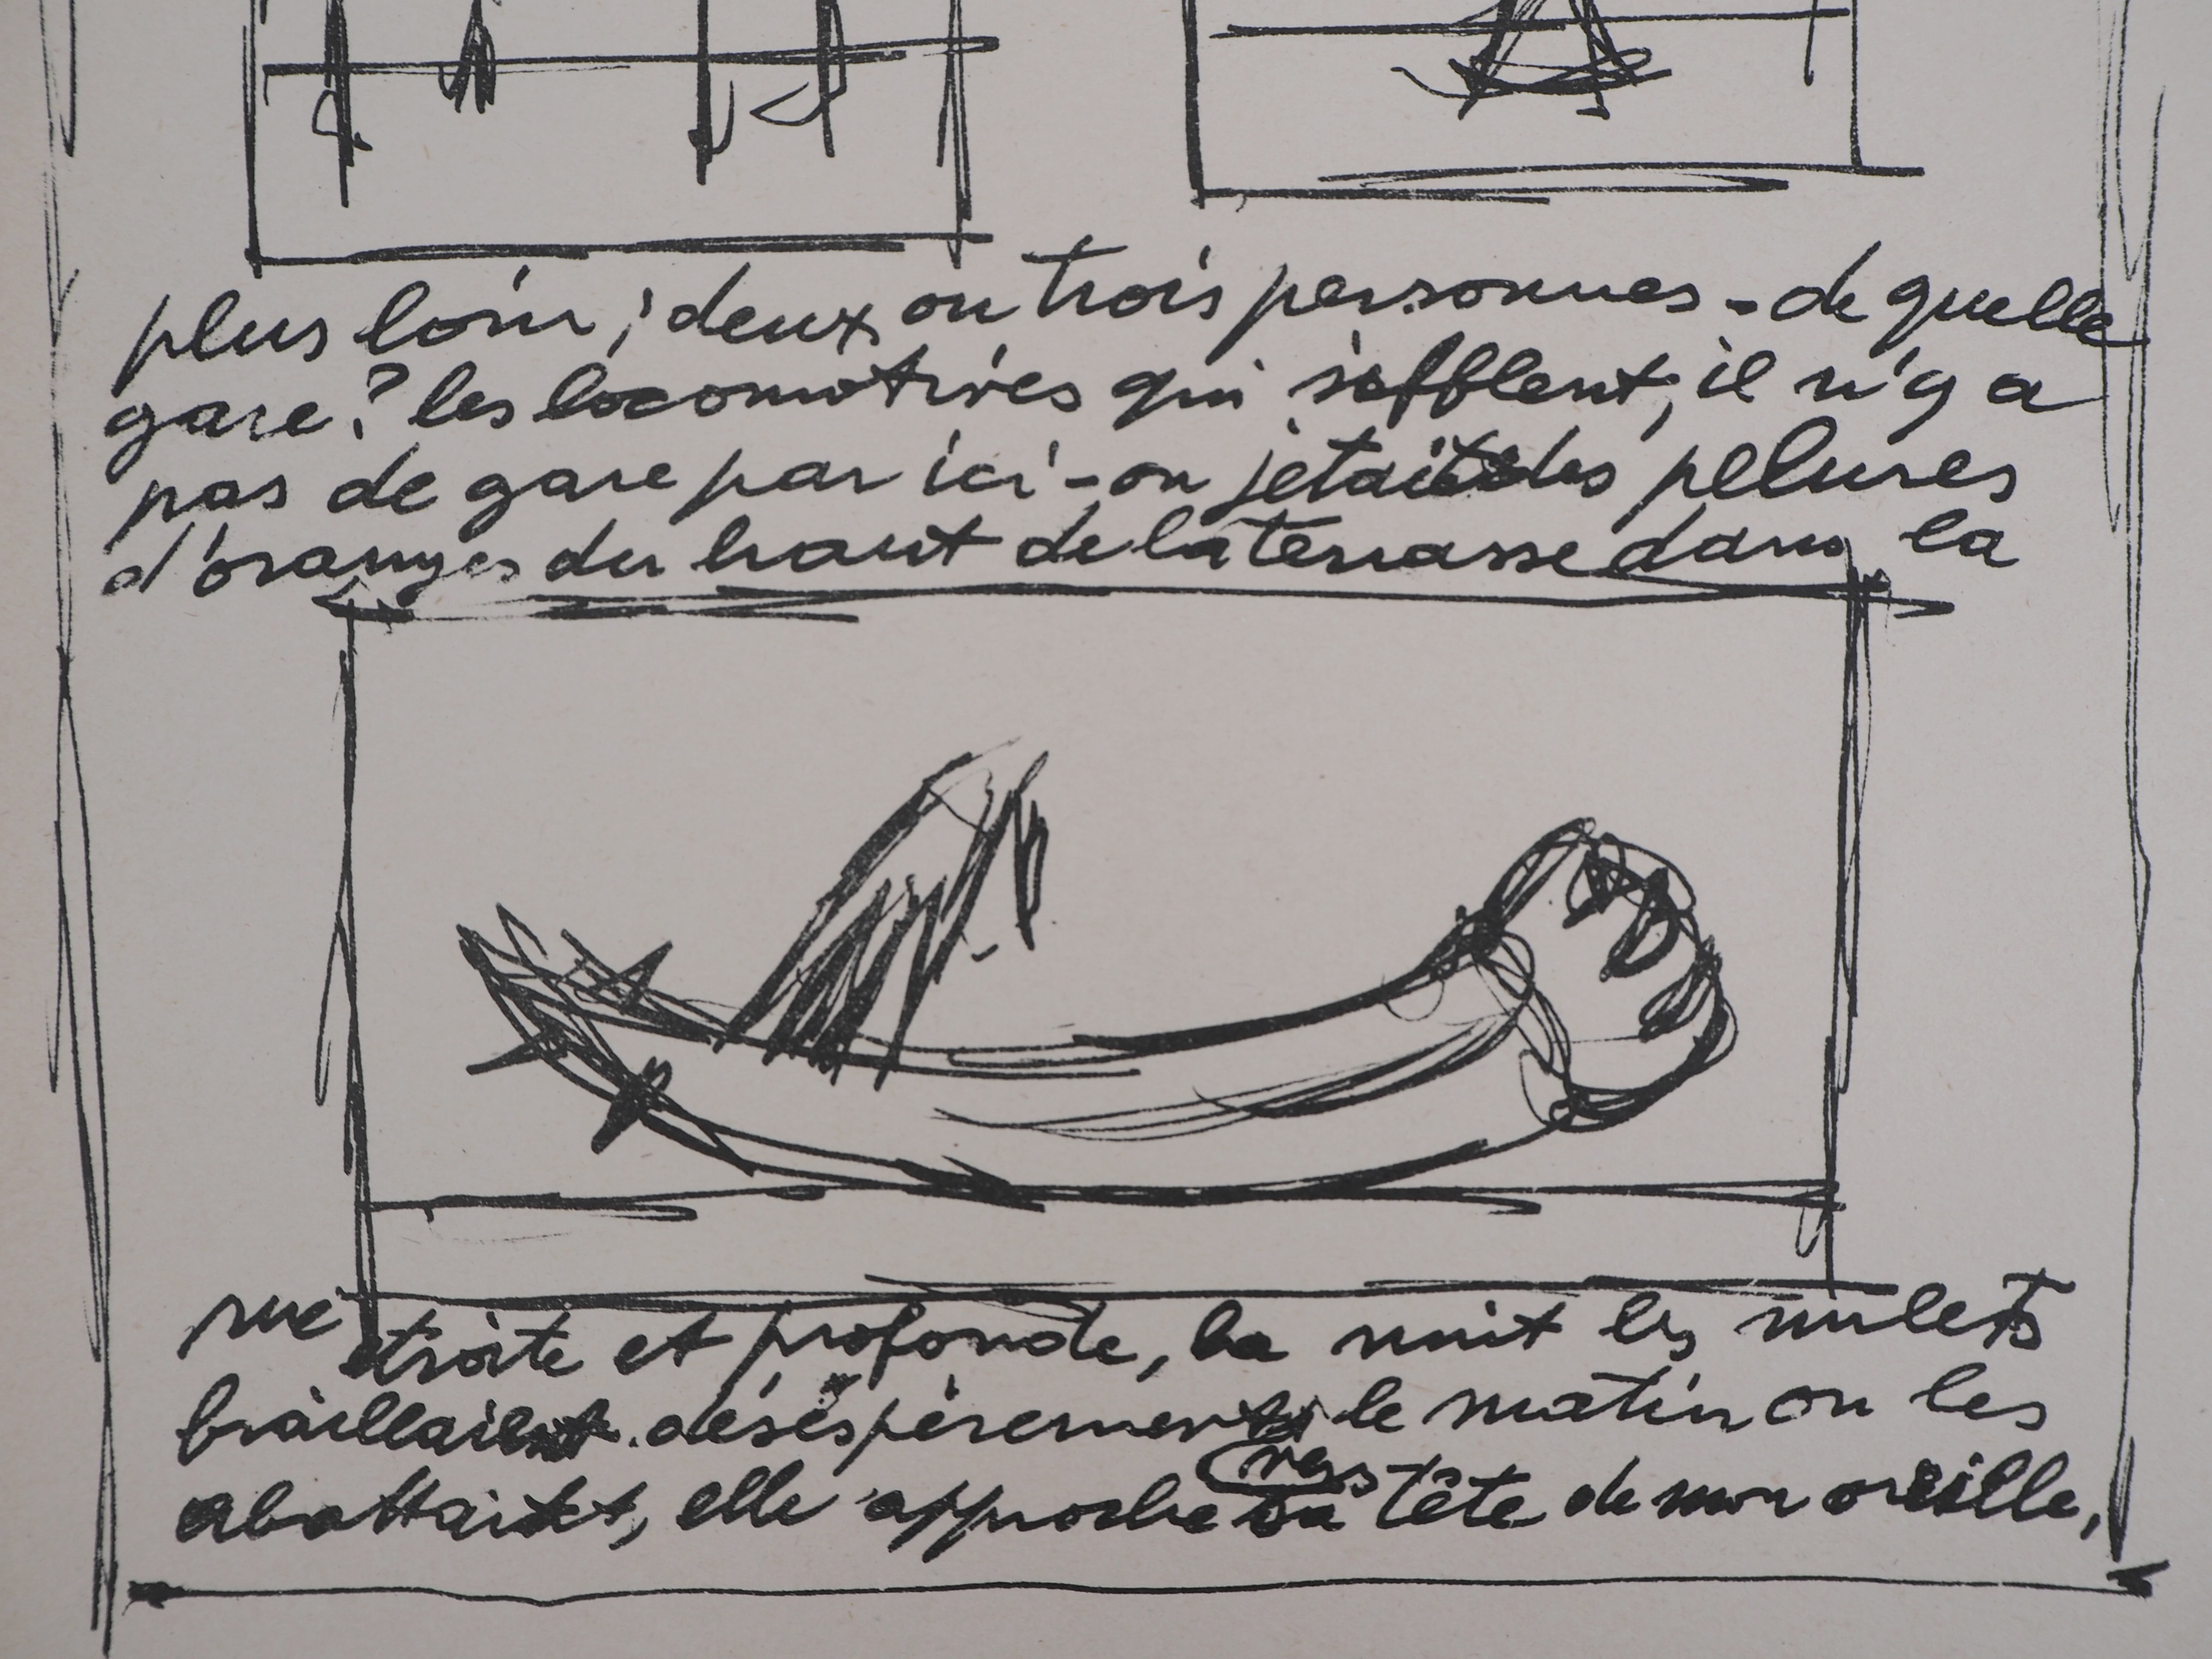 plus loin; deux ou trois personnes - de quelle
gare? les locomotives qui sifflent, il n'y a
pas de gare par ici - on jetait des pelures
d'oranges du haut de la terrasse dans la
rue étroite et profonde, la nuit les mulets
braillaient déséspérement, le matin on les
abattait, elle approche sa tête de mon oreille,